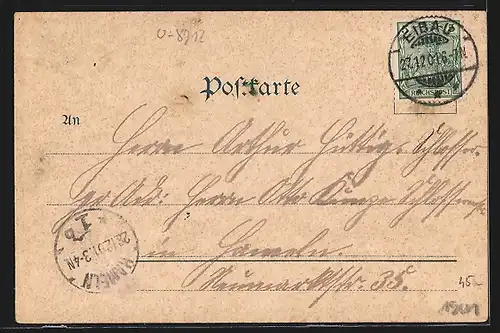 O-8712
EIBAU
27.12.01.6-7N
REICHSPOST
Postkarte
An
Herrn Arthur Hüttig, Schlosser
per Adr: Herrn Otto Kunze Schlossermstr
in Hameln
Neumarktstr. 35.
HAMELN
28.12.01.3-4N
1b
45-
1901